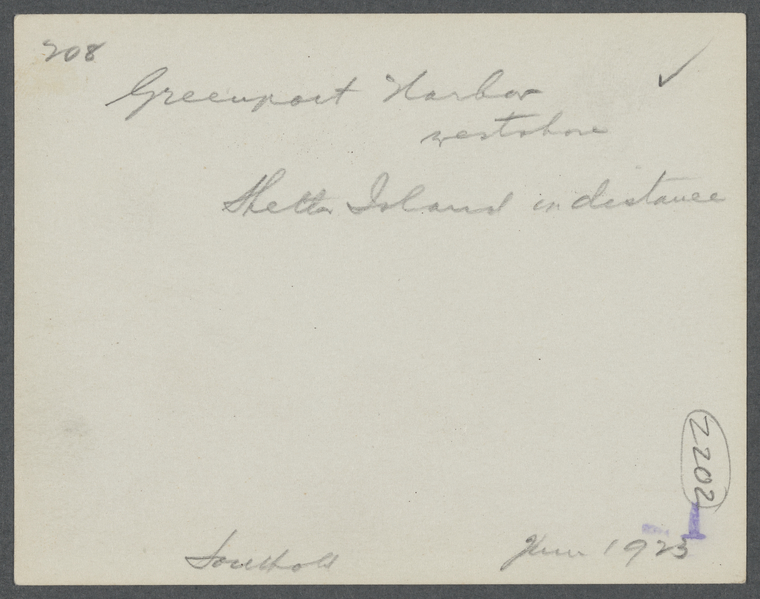 208
Greenport Harbor
westshore
Shelter Island in distance
2202
Southold
June 1923